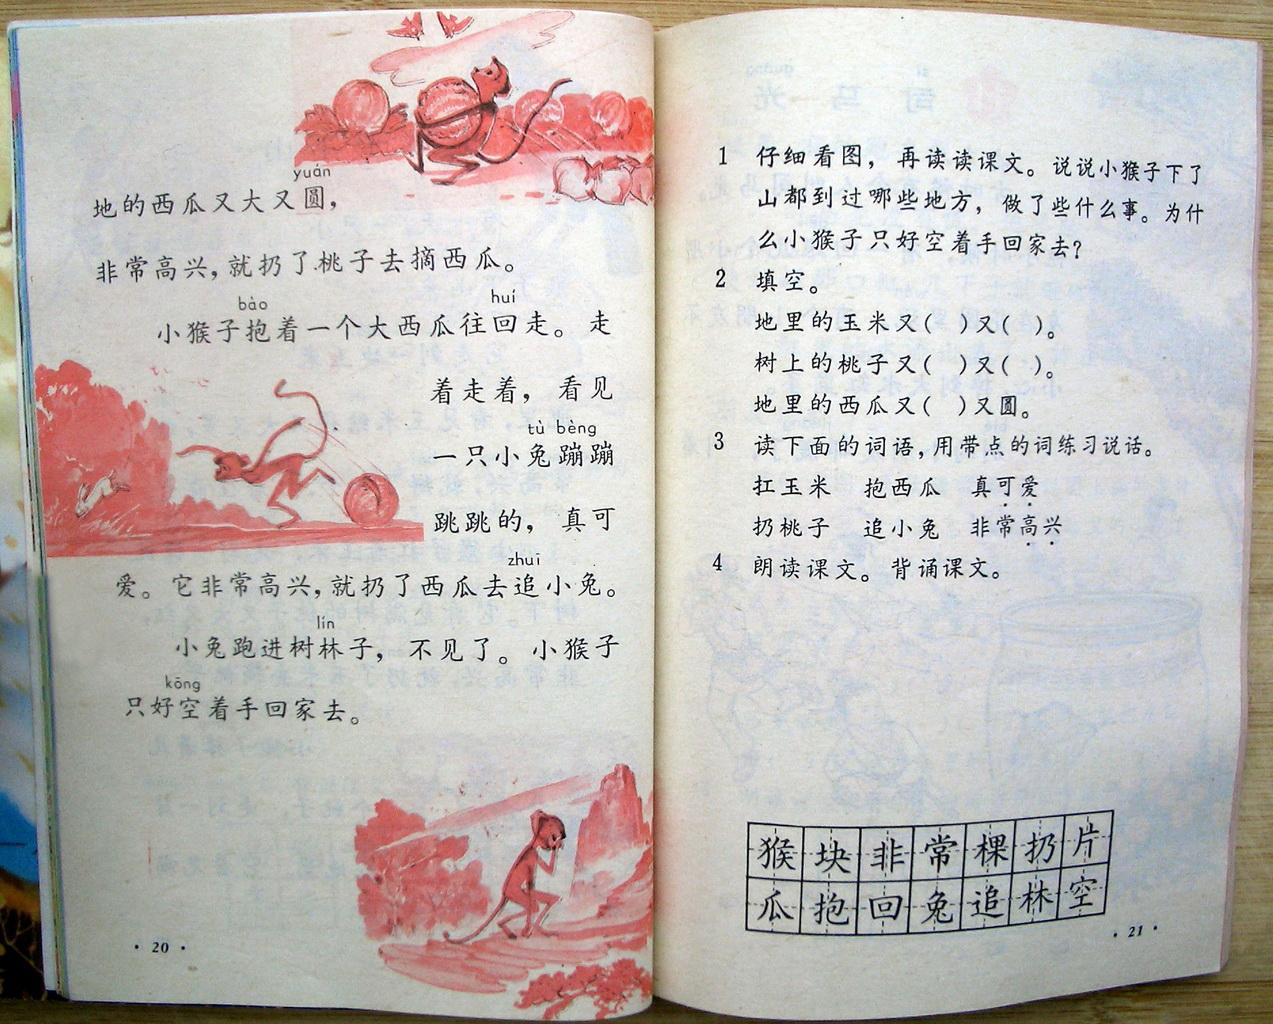 yuán
地的西瓜又大又圆，
非常高兴，就扔了桃子去摘西瓜。
bào huí
小猴子抱着一个大西瓜往回走。走
着走着，看见
tù bèng
一只小兔蹦蹦
跳跳的，真可
zhuī
爱。它非常高兴，就扔了西瓜去追小兔。
lín
小兔跑进树林子，不见了。小猴子
kōng
只好空着手回家去。
·20·
1 仔细看图，再读读课文。说说小猴子下了
山都到过哪些地方，做了些什么事。为什
么小猴子只好空着手回家去？
2 填空。
地里的玉米又（ ）又（ ）。
树上的桃子又（ ）又（ ）。
地里的西瓜又（ ）又圆。
3 读下面的词语，用带点的词练习说话。
扛玉米 抱西瓜 真可爱
扔桃子 追小兔 非常高兴
4 朗读课文。背诵课文。
猴块非常棵扔片
瓜抱回兔追林空
·21·